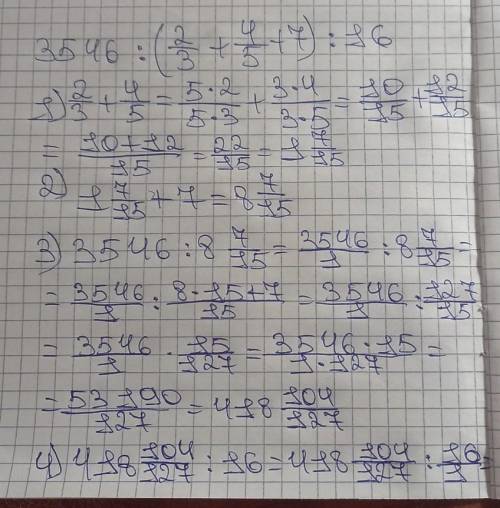 3546 : (2/3 + 4/5 + 7) : 16
1) 2/3 + 4/5 = 5·2/5·3 + 3·4/3·5 = 10/15 + 12/15
= 10+12/15 = 22/15 = 1 7/15
2) 1 7/15 + 7 = 8 7/15
3) 3546 : 8 7/15 = 3546/1 : 8 7/15 =
= 3546/1 : 8·15+7/15 = 3546/1 : 127/15
= 3546/1 · 15/127 = 3546·15/1·127 =
= 53190/127 = 418 104/127
4) 418 104/127 : 16 = 418 104/127 : 16/1 =